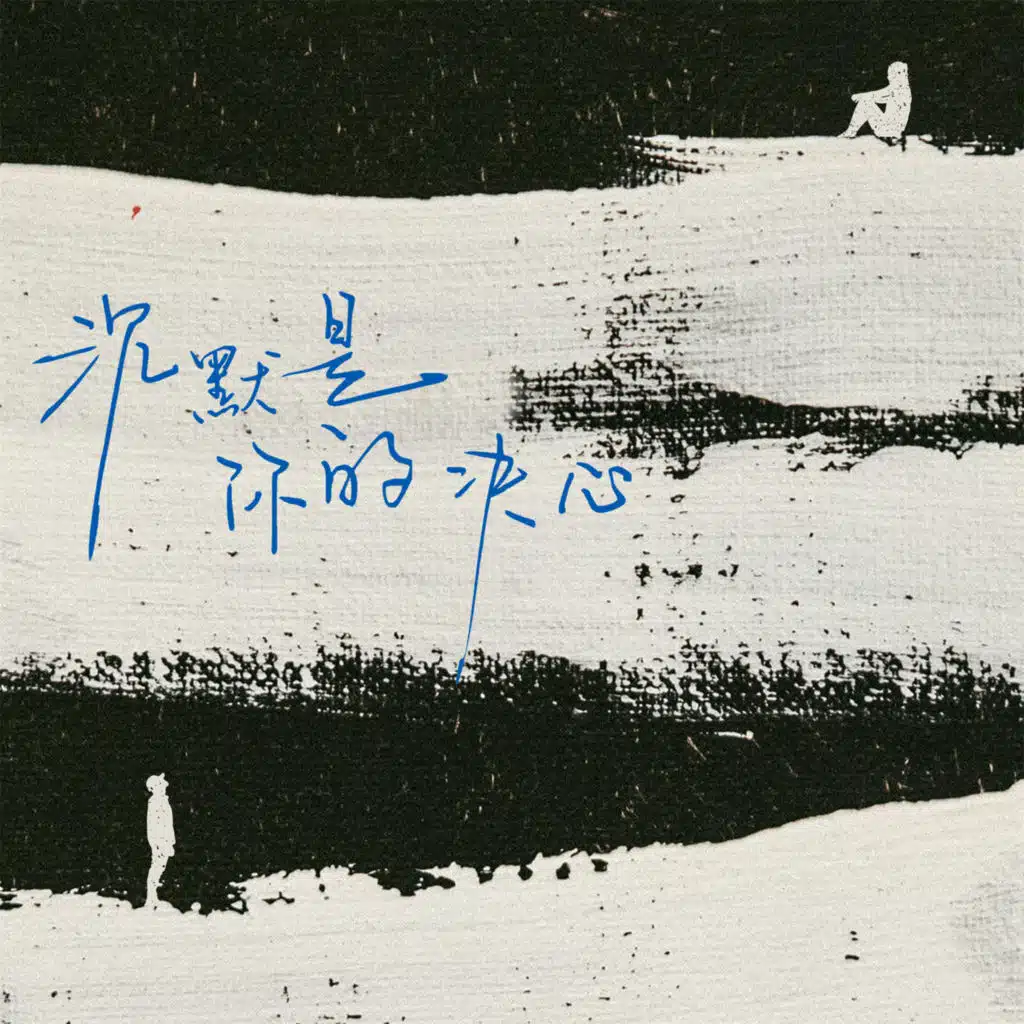 沉默是
你的决心